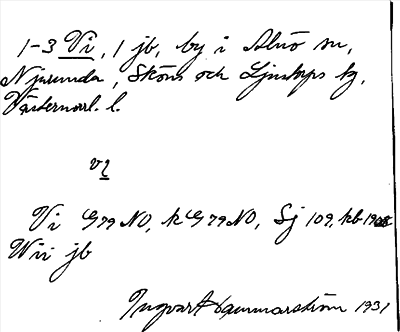 1-3 Vi, 1 jb, by i Alnö sn,
Njurunda, Sköns och Ljustorps tg,
Västernorrl. l.
vi
Vi G79 NO, k G79 NO, Sj 109, kb 19
Wii jb
Ingvar Hammarström 1931